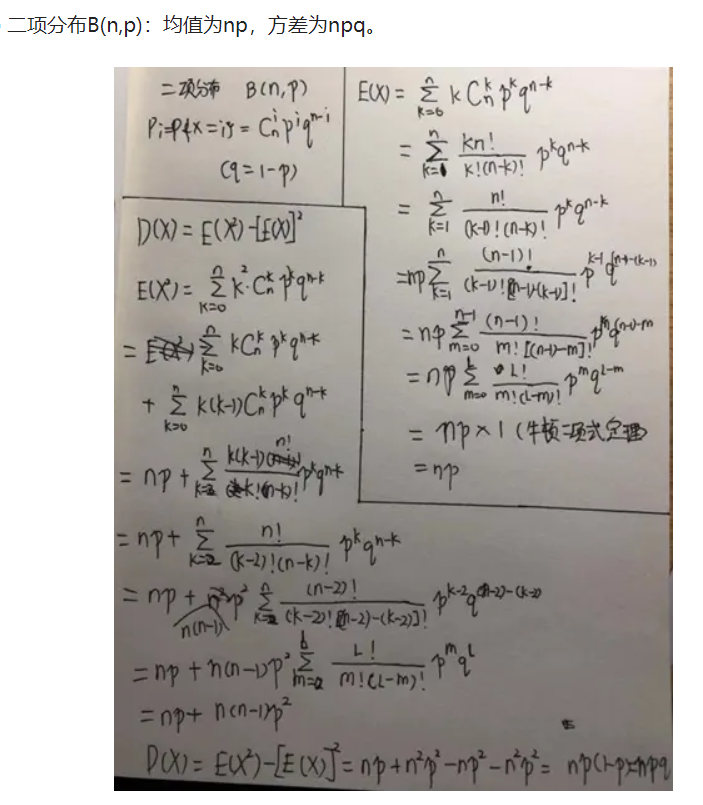 二项分布B(n,p)：均值为np，方差为npq。
二项分布 B(n,p)
Pi=P{X=i}= C_n^i p^i q^{n-i}
(q=1-p)
E(X)= ∑_{k=0}^{n} k C_n^k p^k q^{n-k}
= ∑_{k=1}^{n} kn!/k!(n-k)! p^k q^{n-k}
= ∑_{k=1}^{n} n!/(k-1)!(n-k)! p^k q^{n-k}
=np∑_{k=1}^{n} (n-1)!/(k-1)![(n-1)-(k-1)]! p^{k-1} q^{(n-1)-(k-1)}
= np∑_{m=0}^{n-1} (n-1)!/m![(n-1)-m]! p^m q^{(n-1)-m}
= np∑_{m=0}^{L} L!/m!(L-m)! p^m q^{L-m}
= np×1 (牛顿二项式定理)
= np
D(X)= E(X²)-[E(X)]²
E(X²)= ∑_{k=0}^{n} k²·C_n^k p^k q^{n-k}
= ∑_{k=0}^{n} kC_n^k p^k q^{n-k}
+ ∑_{k=0}^{n} k(k-1)C_n^k p^k q^{n-k}
= np + ∑_{k=2}^{n} k(k-1)n!/k!(n-k)! p^k q^{n-k}
= np+ ∑_{k=2}^{n} n!/(k-2)!(n-k)! p^k q^{n-k}
= np + n(n-1)p² ∑_{k=2}^{n} (n-2)!/(k-2)![(n-2)-(k-2)]! p^{k-2} q^{(n-2)-(k-2)}
= np + n(n-1)p² ∑_{m=0} L!/m!(L-m)! p^m q^l
= np+ n(n-1)p²
D(X)= E(X²)-[E(X)]²= np+n²p²-np²-n²p²= np(1-p)=npq